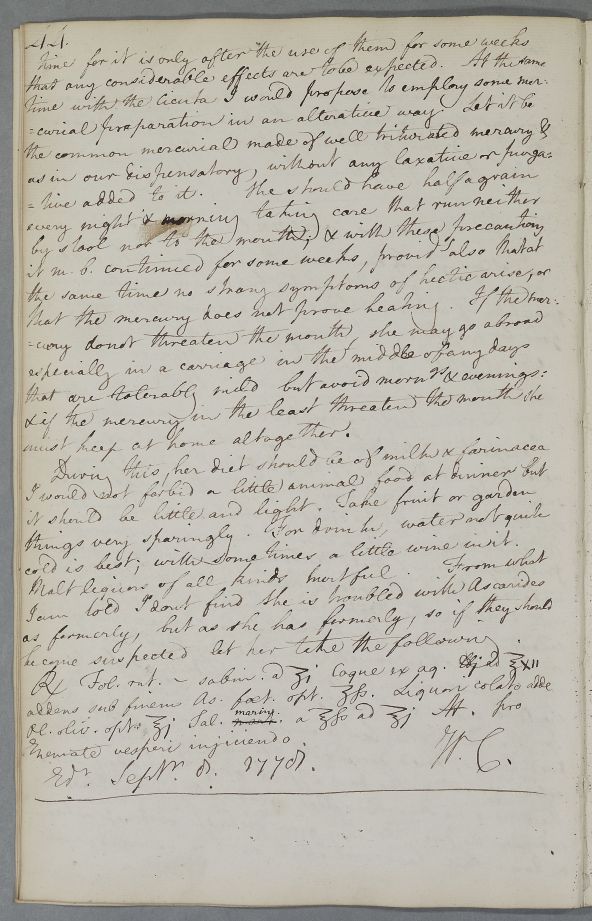 44.
time for it is only after the use of them for some weeks
that any considerable effects are to be expected. At the same
time with the Cicuta I would propose to employ some mer-
=curial preparation in an alterative way. Let it be
the common mercurial made of well triturated mercury &
as in our dispensatory, without any laxative or purga=
=tive added to it. She should have half a grain
every night & morning taking care that run neither
by stool nor to the mouth; & with these precautions
it m. b. continued for some weeks, provid.d also that at
the same time no strong symptoms of hectic arise, or
that the mercury does not prove heating. If the mer:
=cury do not threaten the mouth, she may go abroad
especially in a carriage in the middle of any days
that are tolerably mild but avoid morn.gs & evenings:
& if the mercury in the least threaten the mouth she
must keep at home altogether.
During this, her diet should be of milk & farinacea
I would not forbid a little animal food at dinner but
it should be little and light. Take fruit or garden
things very sparingly. For drink, water not quite
cold is best; with sometimes a little wine in it.
Malt liquors of all kinds hurtful. From what
I am told I dont find she is troubled with Ascarides
as formerly, but as she has formerly, so if they should
be again suspected let her take the following.
Rx Fol. rut. ~ sabin. a ʒj Coque ex aq. ad ℥XII
addens sub finem As. foet. opt. ʒſs. Liquori colato adde
ol. oliv. opt. ℥j Sal. marin. a ʒſs ad ʒj M. pro
Enemate vesperi injiciendo.
Ed.r Sept.r 8. 1778. W. C.